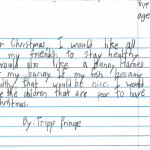 Tripp
age
r Christmas, I would like all
my friends to stay health
would also like a Benny Harnes
r my bunny. If my fish became
lthy that would be nice. I would
e the children that are poor to have
hristmas.
By: Tripp Prince